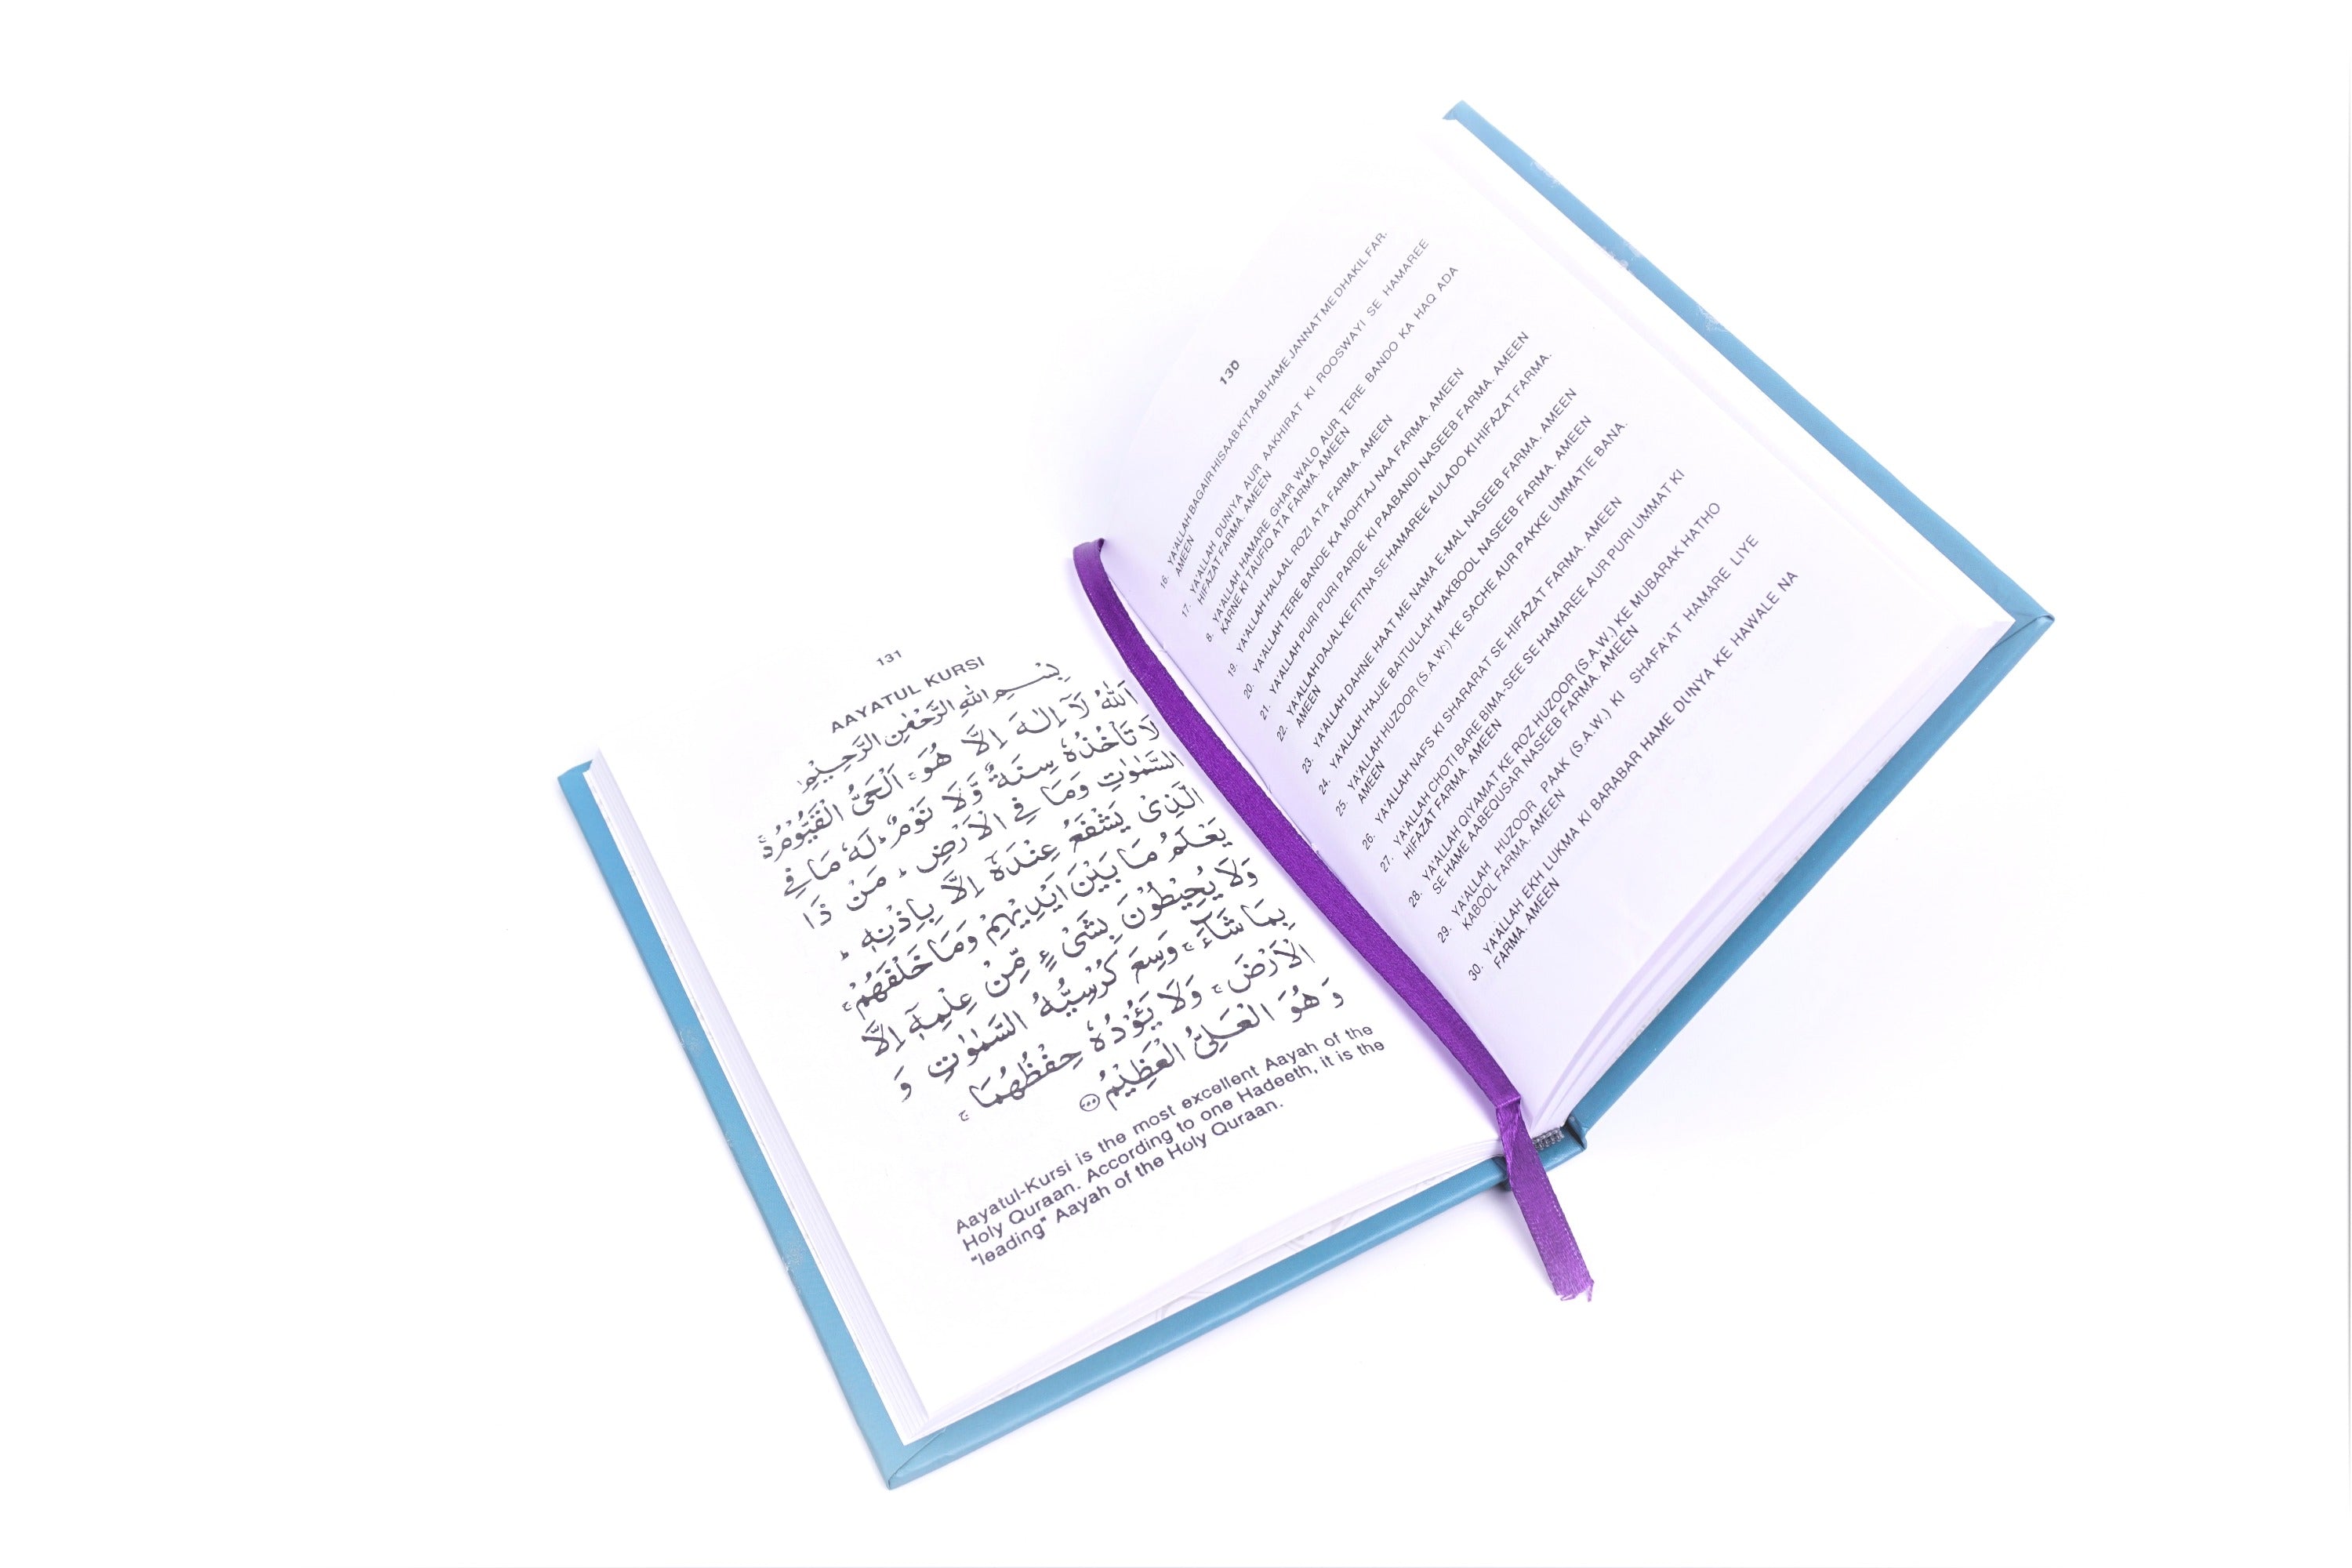 130
16. YA'ALLAH BAGAIR HISAAB KITAAB HAME JANNAT ME DHAKIL FAR.
AMEEN
17. YA'ALLAH DUNIYA AUR AAKHIRAT KI ROOSWAYI SE HAMAREE
HIFAZAT FARMA. AMEEN
8. YA'ALLAH HAMARE GHAR WALO AUR TERE BANDO KA HAQ ADA
KARNE KI TAUFIQ ATA FARMA. AMEEN
19. YA'ALLAH HALAAL ROZI ATA FARMA. AMEEN
20. YA'ALLAH TERE BANDE KA MOHTAJ NAA FARMA. AMEEN
21. YA'ALLAH PURI PURI PARDE KI PAABANDI NASEEB FARMA. AMEEN
22. YA'ALLAH DAJAL KE FITNA SE HAMAREE AULADO KI HIFAZAT FARMA.
AMEEN
23. YA'ALLAH DAHNE HAAT ME NAMA E-MAL NASEEB FARMA. AMEEN
24. YA'ALLAH HAJJE BAITULLAH MAKBOOL NASEEB FARMA. AMEEN
25. YA'ALLAH HUZOOR (S.A.W.) KE SACHE AUR PAKKE UMMATIE BANA.
AMEEN
26. YA'ALLAH NAFS KI SHARARAT SE HIFAZAT FARMA. AMEEN
27. YA'ALLAH CHOTI BARE BIMA-SEE SE HAMAREE AUR PURI UMMAT KI
HIFAZAT FARMA. AMEEN
28. YA'ALLAH QIYAMAT KE ROZ HUZOOR (S.A.W.) KE MUBARAK HATHO
SE HAME AABEQUSAR NASEEB FARMA. AMEEN
29. YA'ALLAH HUZOOR PAAK (S.A.W.) KI SHAFA'AT HAMARE LIYE
KABOOL FARMA. AMEEN
30. YA'ALLAH EKH LUKMA KI BARABAR HAME DUNYA KE HAWALE NA
FARMA. AMEEN
131
AAYATUL KURSI
بِسْمِ اللهِ الرَّحْمٰنِ الرَّحِيْمِ
اَللهُ لَآ اِلٰهَ اِلَّا هُوَ ۚ اَلْحَىُّ الْقَيُّوْمُ ۚ
لَا تَأْخُذُهٗ سِنَةٌ وَّلَا نَوْمٌ ؕ لَهٗ مَا فِى
السَّمٰوٰتِ وَمَا فِى الْاَرْضِ ؕ مَنْ ذَا
الَّذِىْ يَشْفَعُ عِنْدَهٗٓ اِلَّا بِاِذْنِهٖ ؕ
يَعْلَمُ مَا بَيْنَ اَيْدِيْهِمْ وَمَا خَلْفَهُمْ ۚ
وَلَا يُحِيْطُوْنَ بِشَىْءٍ مِّنْ عِلْمِهٖٓ اِلَّا
بِمَا شَآءَ ۚ وَسِعَ كُرْسِيُّهُ السَّمٰوٰتِ وَ
الْاَرْضَ ۚ وَلَا يَئُوْدُهٗ حِفْظُهُمَا ۚ
وَ هُوَ الْعَلِىُّ الْعَظِيْمُ
Aayatul-Kursi is the most excellent Aayah of the
Holy Quraan. According to one Hadeeth, it is the
"leading" Aayah of the Holy Quraan.